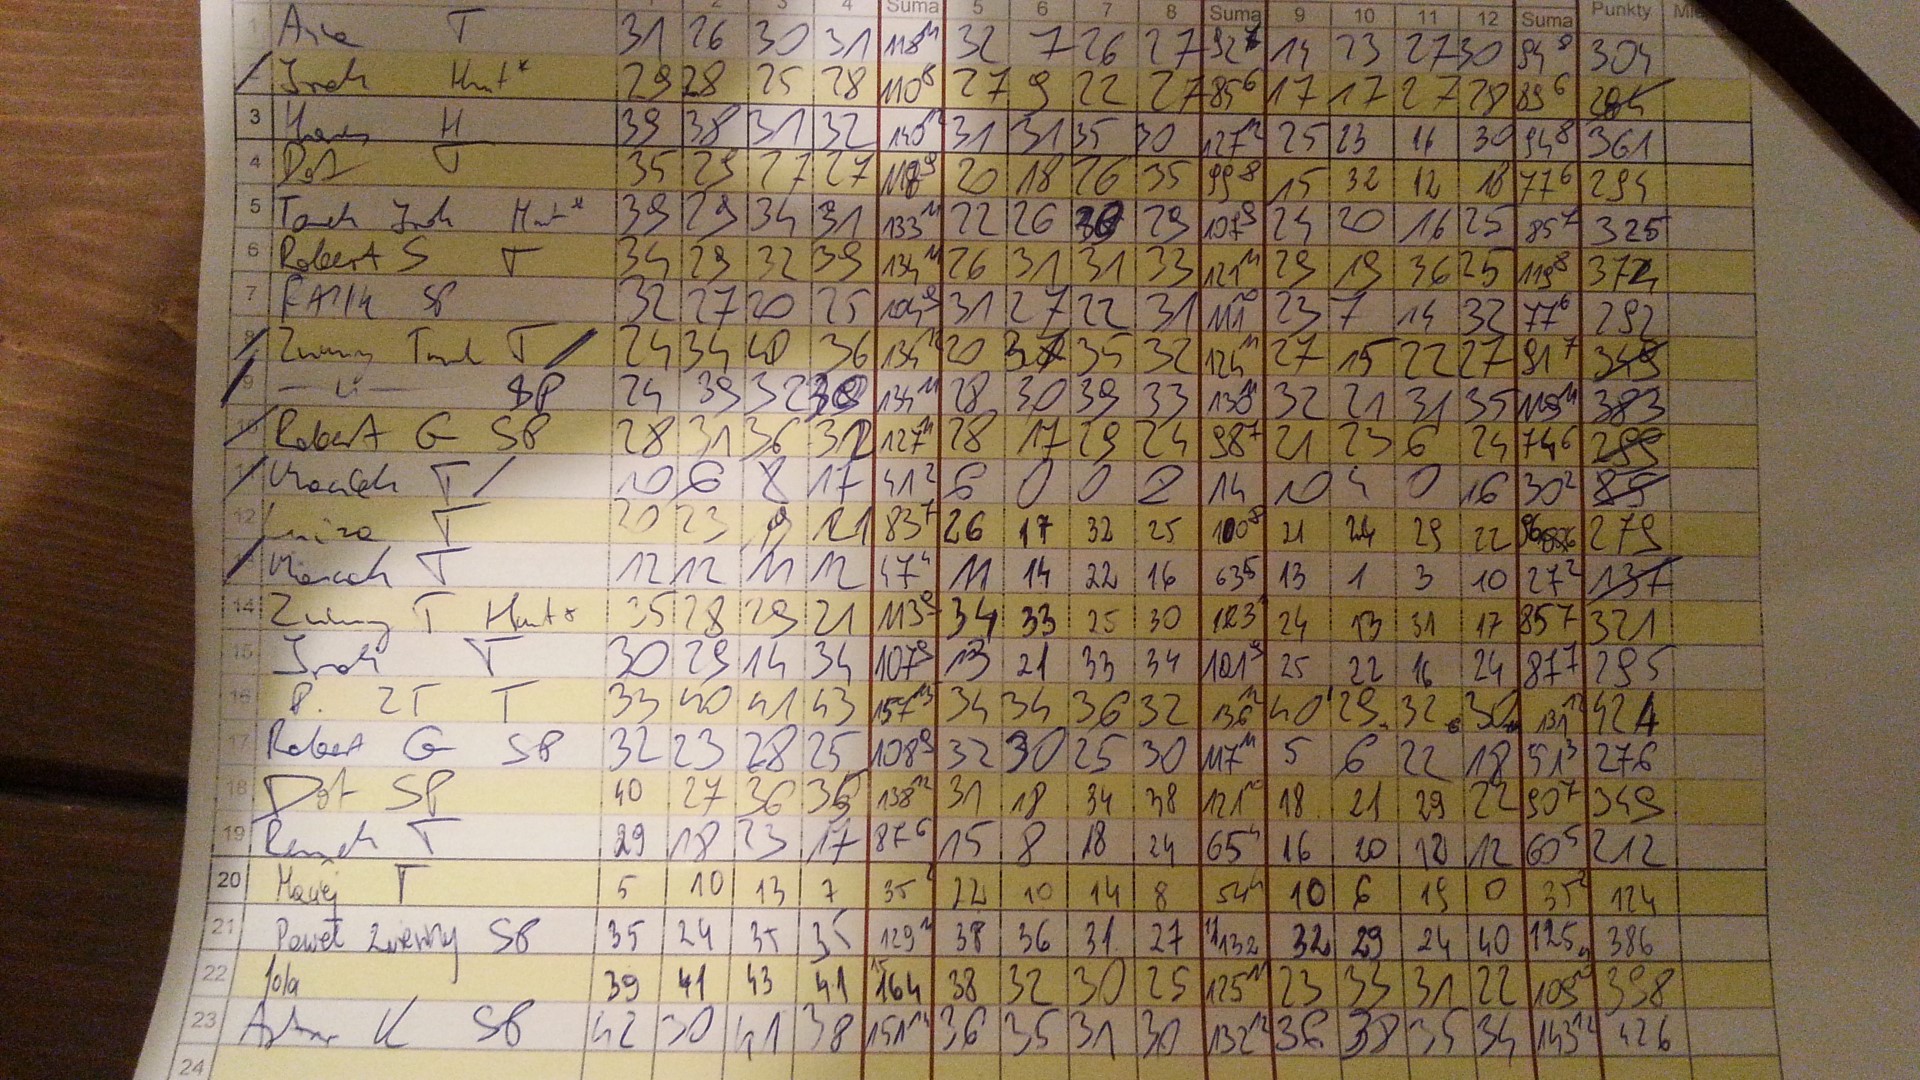 1 2 3 4 Suma 5 6 7 8 Suma 9 10 11 12 Suma Punkty
1 T 31 26 30 31 118 32 7 26 27 92 14 23 27 30 94 8 304
Hunt* 29 28 25 28 110 8 27 9 22 27 85 6 17 17 27 28 89 6
3 H 39 38 31 32 140 31 31 35 30 127 25 23 16 30 94 8 361
4 Dot T 35 29 27 27 20 18 26 35 99 8 15 32 12 18 77 6 294
5 Hunt* 39 29 34 31 133 22 26 30 29 107 9 24 20 16 25 85 7 325
6 Robert S T 34 29 32 39 134 26 31 31 33 121 29 19 36 25 119 8 374
7 SP 32 27 20 25 104 9 31 27 22 31 111 23 7 14 32 77 6 292
8 T 24 34 40 36 134 20 35 32 124 27 15 22 27 91 7
9 SP 24 39 32 134 28 30 39 33 130 32 21 31 35 383
10 Robert G SP 28 31 36 32 127 28 17 29 24 98 7 21 23 6 24 74 6 299
T 10 6 8 17 41 2 6 0 0 8 14 10 4 0 16 30 2 85
12 T 20 23 19 21 83 7 26 17 32 25 100 8 21 24 29 22 96 279
T 12 12 11 12 47 4 11 14 22 16 63 5 13 1 3 10 27 2 137
14 T Hunt* 35 28 29 21 113 9 34 33 25 30 123 24 13 31 17 85 7 321
15 T 30 29 14 34 107 9 13 21 33 34 101 9 25 22 16 24 87 7 295
16 P. ZT T 33 40 41 43 157 13 34 34 36 32 136 40 29 32 30 131 424
17 Robert G SP 32 23 28 25 108 9 32 30 25 30 117 11 5 6 22 18 51 3 276
18 Dot SP 40 27 36 36 138 12 31 18 34 38 121 18 21 29 22 90 7 349
19 T 29 18 23 17 87 6 15 8 18 24 65 4 16 20 12 12 60 5 212
20 Maciej T 5 10 13 7 35 2 22 10 14 8 54 4 10 6 19 0 35 2 124
21 Paweł Zwierny SP 35 24 35 35 129 38 36 31 27 11 132 32 29 24 40 125 386
22 Jola 39 41 43 41 15 164 38 32 30 25 125 11 23 33 31 22 109 398
23 K SP 42 30 41 38 151 14 36 35 31 30 132 12 36 38 35 34 143 12 426
24